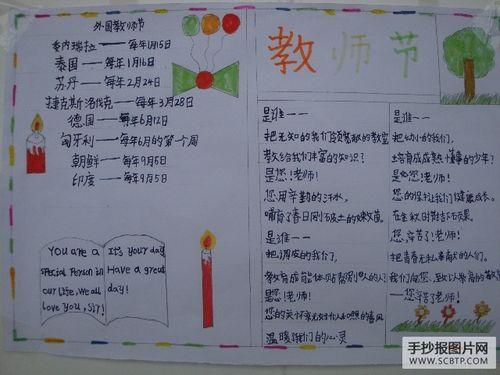 外国教师节
委内瑞拉——每年1月15日
泰国——每年1月16日
苏丹——每年2月24日
捷克斯洛伐克——每年3月28日
德国——每年6月12日
匈牙利——每年6月的第一个周
朝鲜——每年9月5日
印度——每年9月5日
You are a
special person in
our life, We all
love you, Sir!
It's your day
Have a great
day!
教师节
是谁——
把无知的我们领进的教室
教给我们丰富的知识?
是您!老师!
您用辛勤的汗水,
哺育了春日刚破土的嫩苗。
是谁——
把调皮的我们,
教育成能体贴帮助的人?
是您!老师!
您的关怀就好似和煦的春风
温暖我们的心灵
是谁——
把幼小的我们,
培育成成熟懂事的少年?
是您!老师!
您的保护让我们健康成长。
在金秋时结下硕果。
您辛苦了!老师!
把青春无私奉献的人们。
我们向您,致以崇高的敬
——您辛苦了!老师!
手抄报图片网
WWW.SCBTP.COM